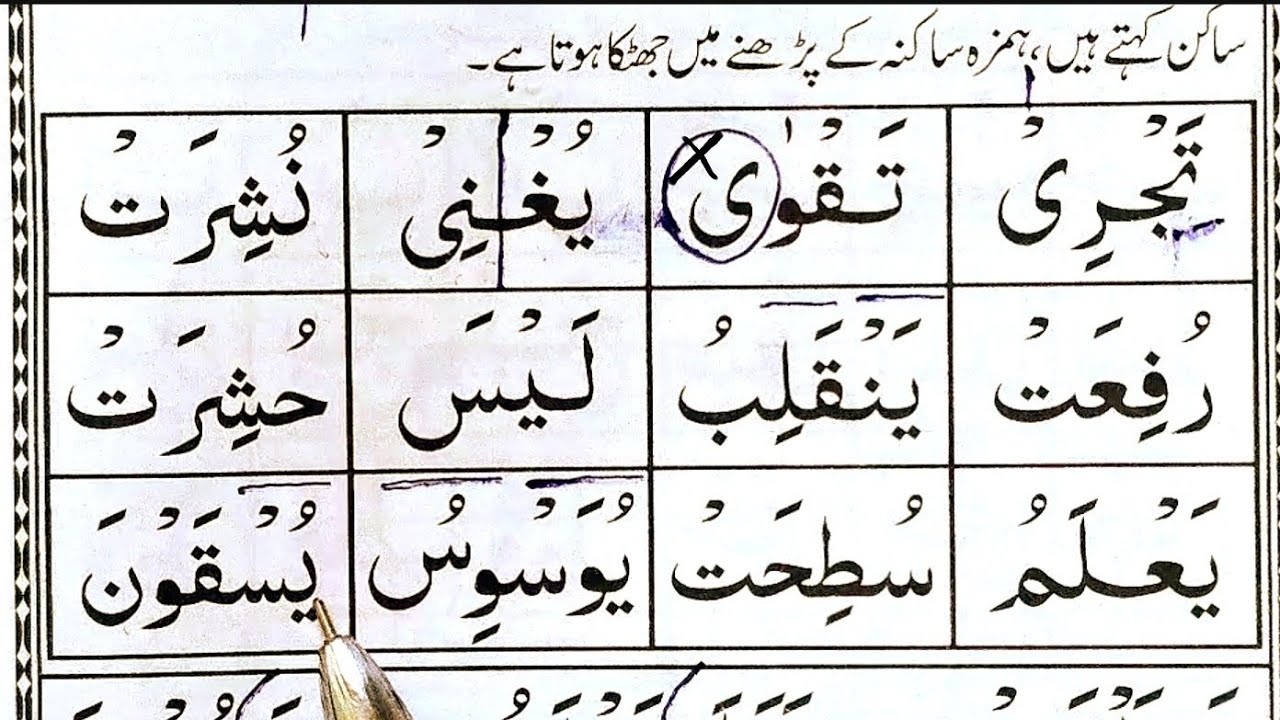 ساکن کہتے ہیں، ہمزہ ساکنہ کے پڑھنے میں جھٹکا ہوتا ہے۔
تَجْرِیْ تَقْوٰی یُغْنِیْ نُشِرَتْ
رُفِعَتْ یَنْقَلِبُ لَیْسَ حُشِرَتْ
یَعْلَمُ سُطِحَتْ یُوَسْوِسُ یُسْقَوْنَ